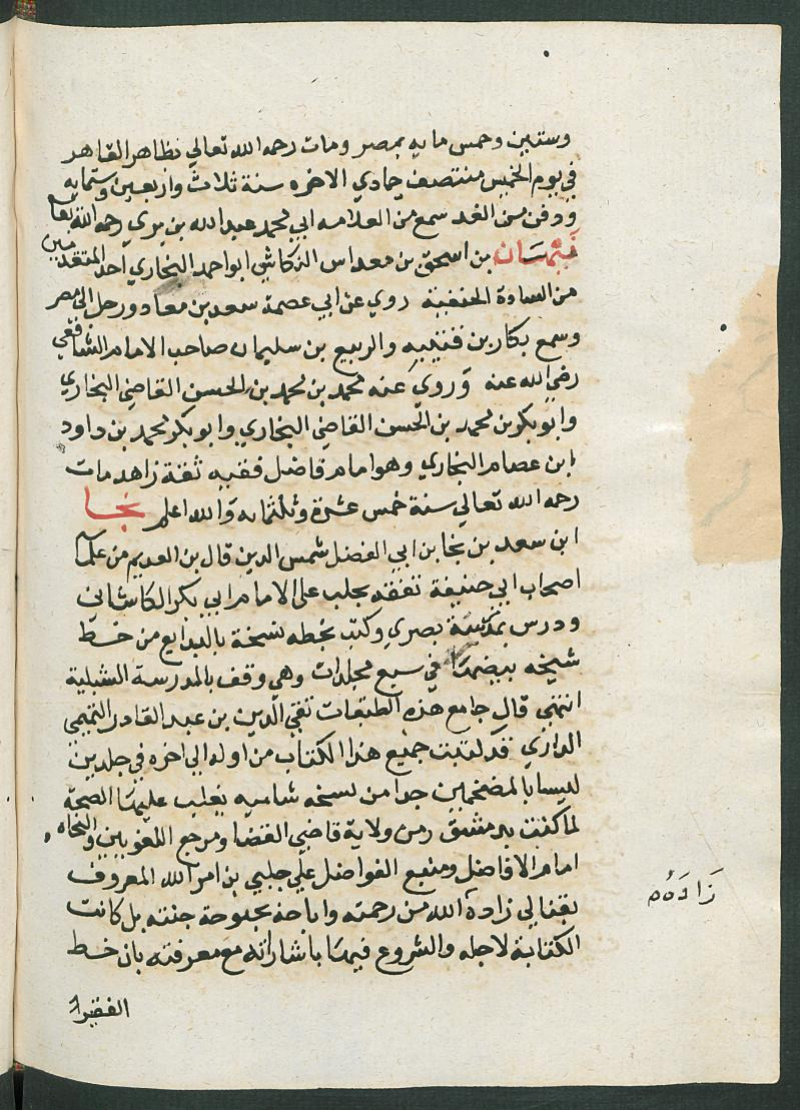 وستين وخمس مايه بمصر ومات رحمه الله تعالي بظاهر القاهر
في يوم الخميس منتصف جمادي الاخره سنة ثلاث واربعين وستمايه
ودفن من الغد سمع من العلامه ابي محمد عبد الله بن بري رحمه الله تعا
بن اسحق بن معداس الزكاشي ابو احمد البخاري احد المتقدمين
من السادة الحنفية روي عن ابي عصمة سعد بن معاد ورحل الي مصر
وسمع بكار بن قتيبه والربيع بن سليمان صاحب الامام الشافعي
رضي الله عنه وروي عنه محمد بن محمد بن الحسن القاضي البخاري
وابو بكر بن محمد بن الحسن القاضي البخاري وابو بكر محمد بن داود
ابن عصام البخاري وهو امام فاضل فقيه ثقة زاهد مات
رحمه الله تعالي سنة خمس عشرة وثلثمايه والله اعلم نجا
ابن سعد بن نجا بن ابي الفضل شمس الدين قال بن العديم من علما
اصحاب ابي حنيفة تفقه بحلب علي الامام ابي بكر الكاشاني
ودرس بمدينة بصري وكتب بخطه نسخة بالبدايع من خط
شيخه بيضها في سبع مجلدات وهي وقف بالمدرسة الشبلية
انتهي قال جامع هذه الطبقات تقي الدين بن عبد القادر التميمي
الداري قد كتبت جميع هذا الكتاب من اوله الي اخره في جلدين
ليسا بالمضخمين جدا من نسخه شاميه يغلب عليها الصحة
لما كنت بدمشق زمن ولاية قاضي القضا ومرجع اللغويين والنحاه
امام الافاضل ومنبع الفواضل علي جلبي بن امر الله المعروف
بقنالي زادة الله من رحمته واباحه بحبوحة جنته بل كانت
الكتابة لاجله والشروع فيها باشاراته مع معرفته بان خط
زَادَهُ
الفقير